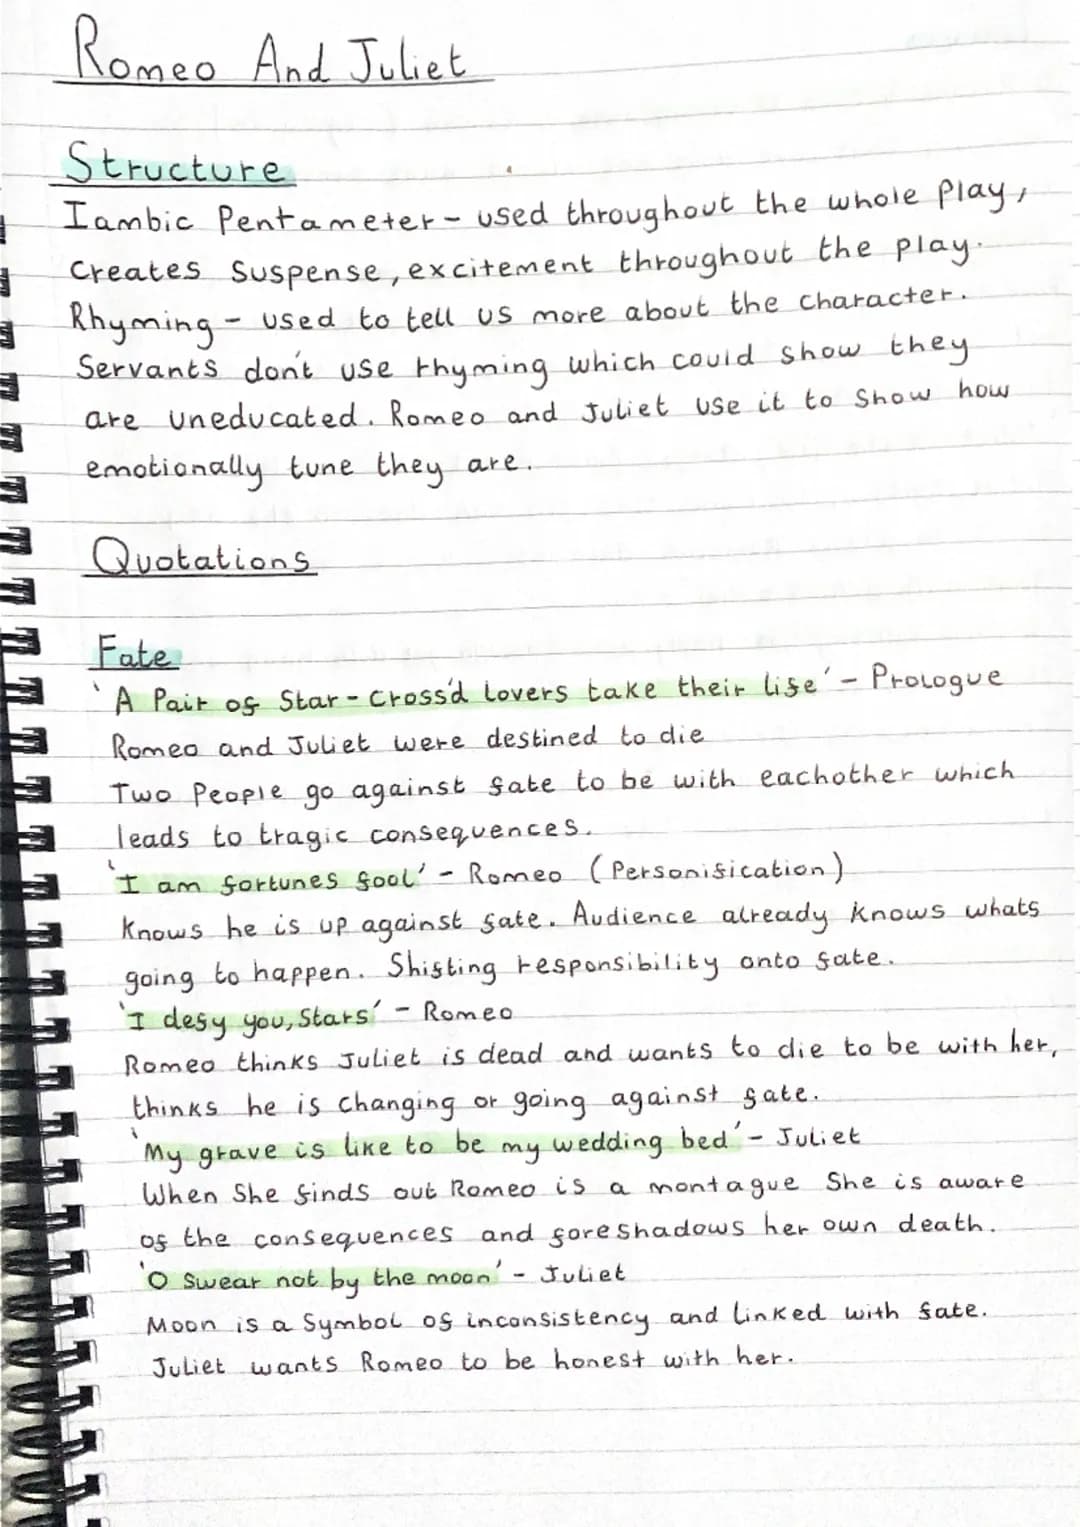 Romeo And Juliet
Structure
Iambic Pentameter - used throughout the whole play,
creates suspense, excitement throughout the play.
Rhyming - used to tell us more about the character.
Servants don't use rhyming which could show they
are uneducated. Romeo and Juliet use it to show how
emotionally tune they are.
Quotations
Fate
'A Pair of Star-Cross'd Lovers take their life' - Prologue
Romeo and Juliet were destined to die
Two People go against fate to be with eachother which
leads to tragic consequences.
'I am fortunes fool' - Romeo (Personification)
Knows he is up against fate. Audience already knows whats
going to happen. Shifting responsibility onto fate.
'I defy you, Stars' - Romeo
Romeo thinks Juliet is dead and wants to die to be with her,
thinks he is changing or going against fate.
'My grave is like to be my wedding bed' - Juliet
When She finds out Romeo is a montague She is aware
of the consequences and foreshadows her own death.
'O Swear not by the moon' - Juliet
Moon is a Symbol of inconsistency and linked with fate.
Juliet wants Romeo to be honest with her.